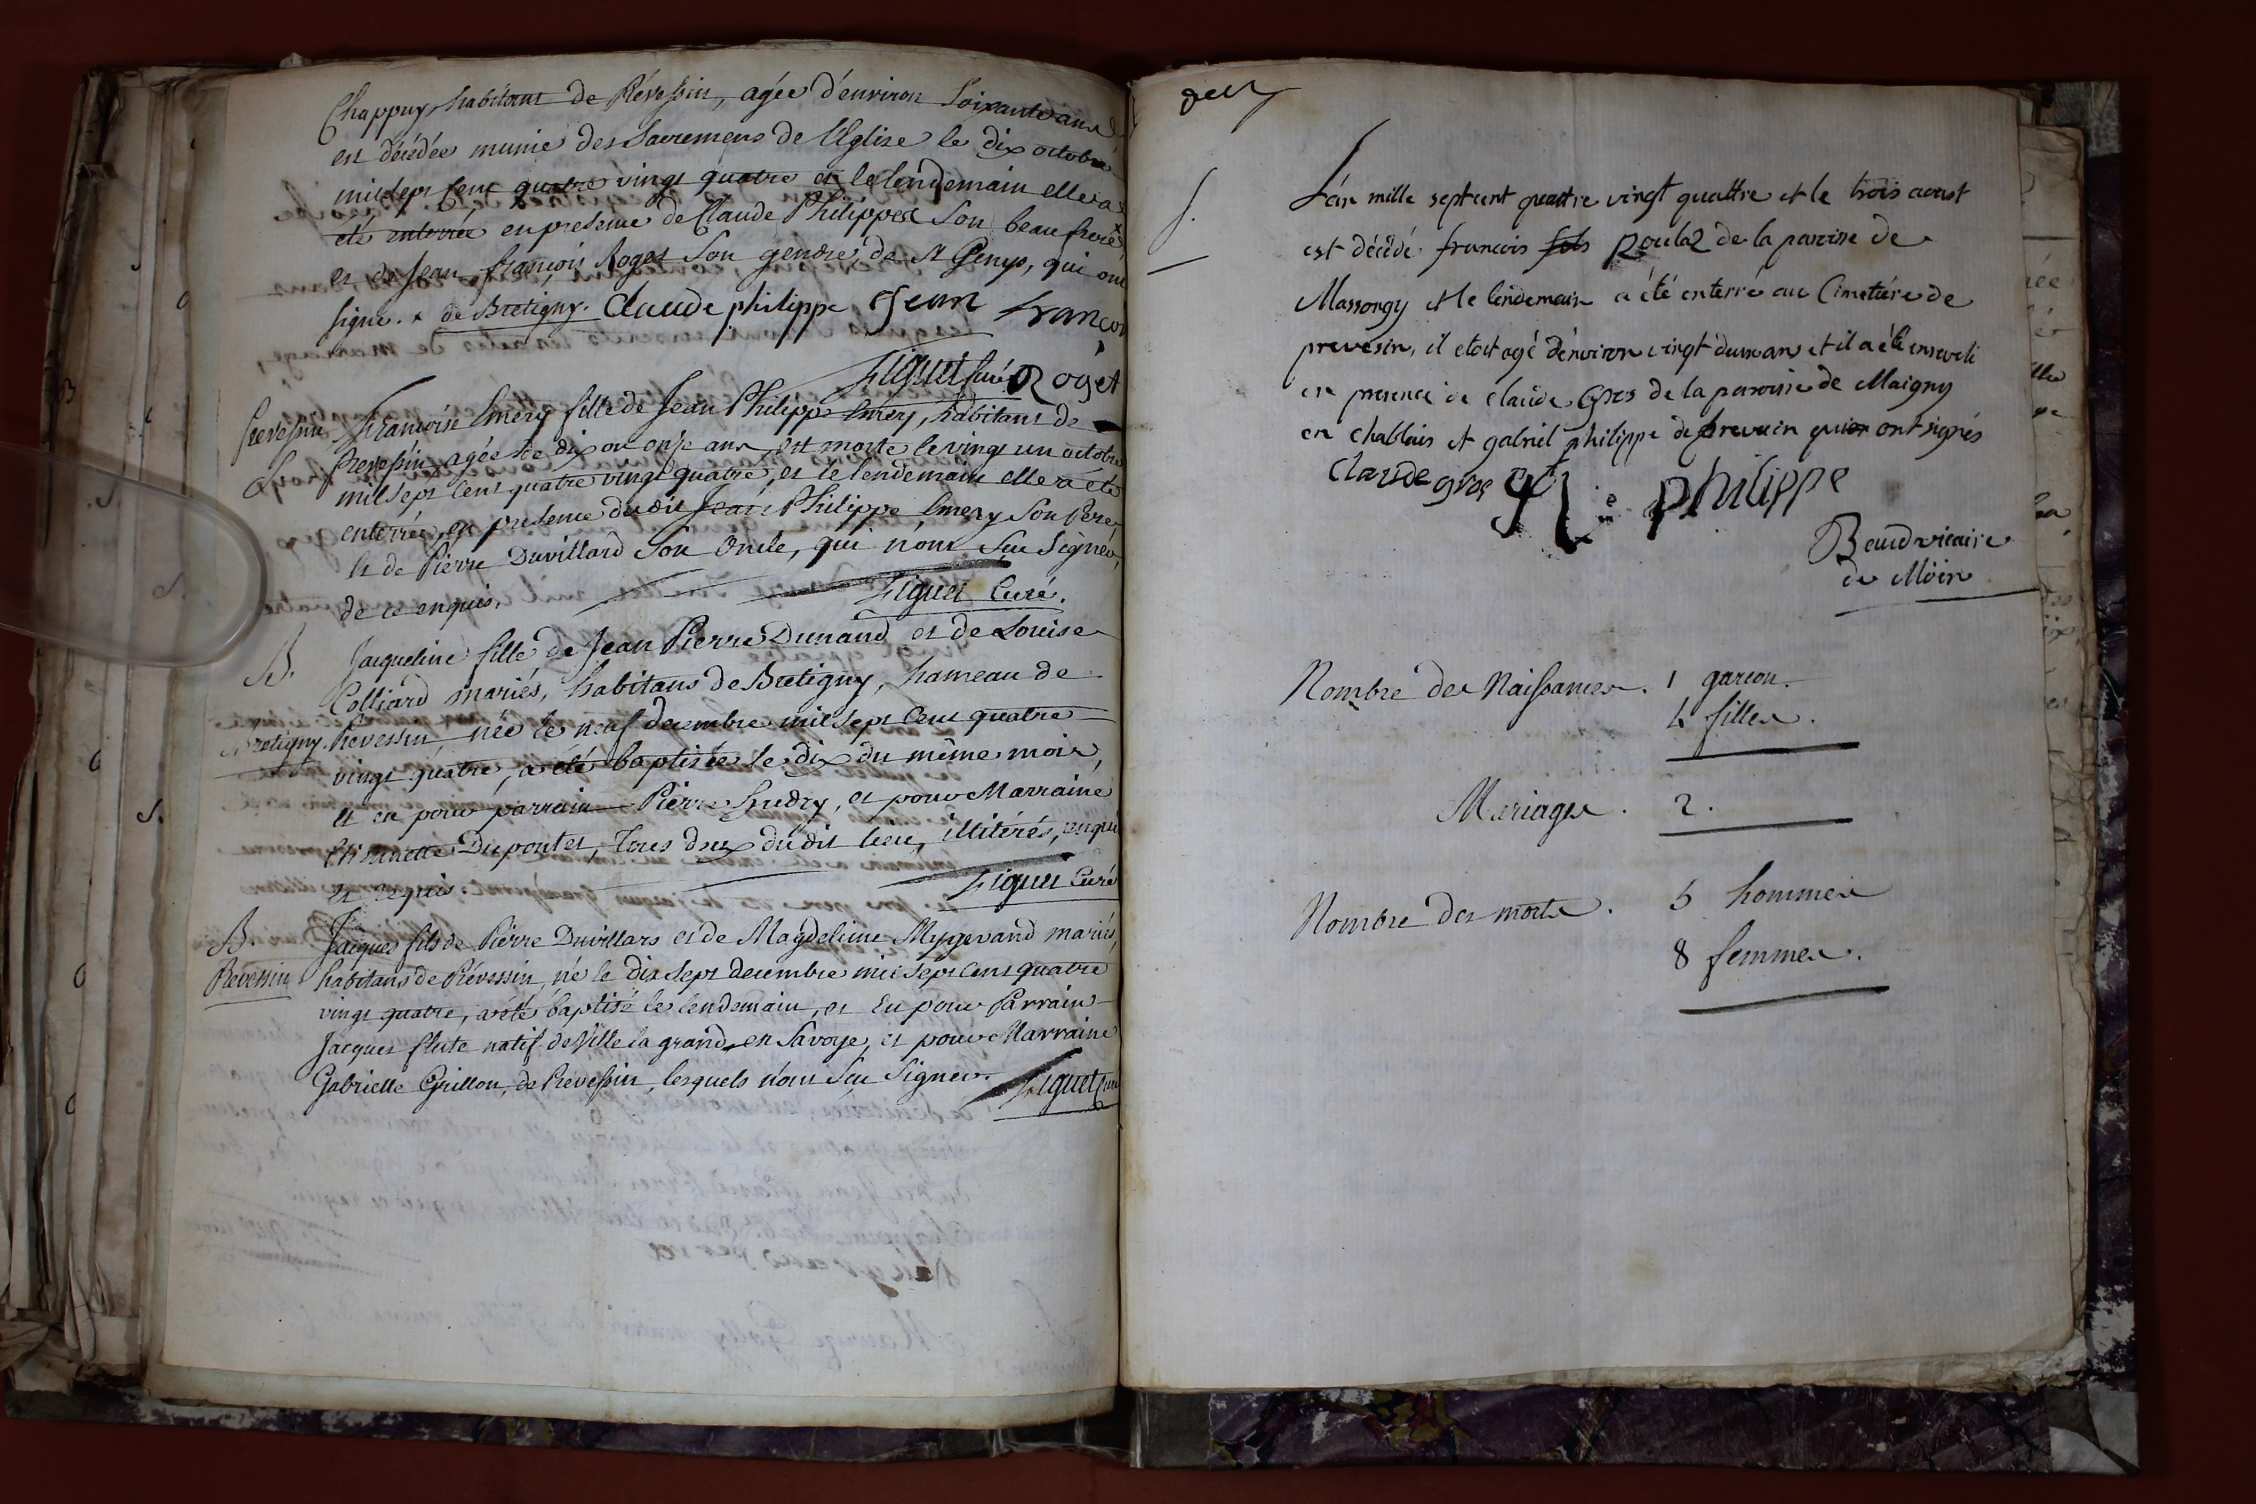 Chappuy habitant de Prévessin, agée d'environ soixante ans
est décédée munie des Sacremens de l'Eglise le dix octobre
mil sept cent quatre vingt quatre et le lendemain elle a
été enterrée en presence de Claude Philippe son beau frere
et de Jean françois Roget son gendre, de St Genys, qui ont
signé. x de Bretigny. Claude philippe Jean françoi
Figuet Curé Roget
Prevessin
S.
Francoise Emery fille de Jean Philippe Emery, habitant de
Prevessin, agée de dix ou onze ans, est morte le vingt un octobre
mil sept cent quatre vingt quatre, et le lendemain elle a été
enterrée, en presence dudit Jean Philippe Emery son Pere
et de Pierre Duvillard son Oncle, qui n'ont seu signer,
de ce enquis.
Figuet Curé.
B.
Bretigny
Jacqueline fille de Jean Pierre Dunand et de Louise
Colliard mariés, habitans de Bretigny, hameau de
Prevessin, née le neuf decembre mil sept cent quatre
vingt quatre, a été baptisée le dix du même mois,
et eu pour parrain Pierre Hudry, et pour Marraine
Etiennette Dupontet, tous deux dudit lieu, illiterés, enquis
et requis.
Figuet Curé
B.
Prevessin
Jacques fils de Pierre Duvillars et de Magdeleine Mygevand mariés,
habitans de Prévessin, né le dix sept decembre mil sept cent quatre
vingt quatre, a été baptisé le lendemain, et eu pour Parrain
Jacques flute natif de Ville la grand, en Savoye, et pour Marraine
Gabrielle Grillon, de Prevessin, lesquels n'ont seu signer.
Figuet Curé
S.
L'an mille sept cent quattre vingt quattre et le trois aoust
est décédé francois fils Poulaz de la paroise de
Massongy et le lendemain a été enterré au Cimetiére de
prevesin, il etoit agé d'environ vingt deux ans et il a été enseveli
en presence de claude Gros de la paroisse de Maigny
en chablais et gabriel philippe de prevesin qui ont signés
Claude gros G philippe
Beaud vicaire
de Moin
Nombre des Naissances. 1 garcon.
4 filles.
Mariages. 2.
Nombre des morts. 5 hommes
8 femmes.